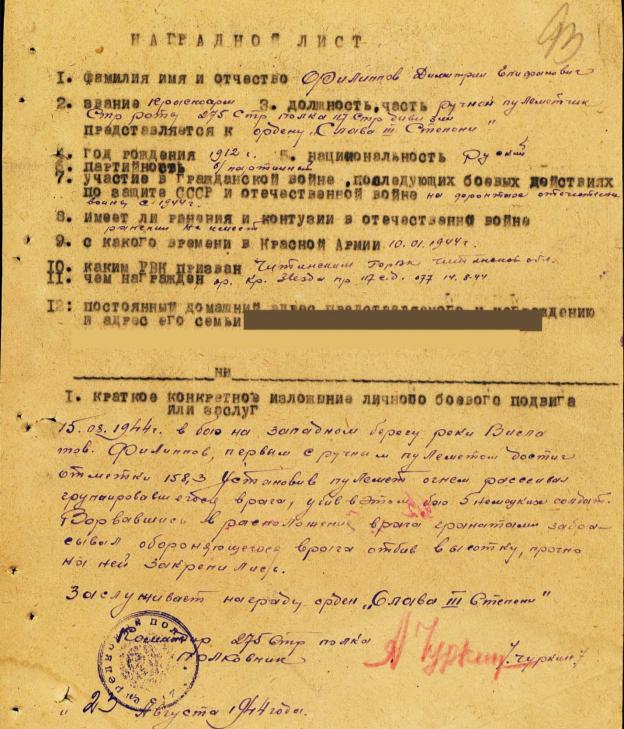 93
НАГРАДНОЙ ЛИСТ
1. фамилия имя и отчество Филиппов Димитрий Епифанович
2. звание Красноарм 3. должность, часть ручной пулеметчик
Стр роты 275 Стр полка 117 Стр дивизии
представляется к ордену "Слава III Степени"
4. год рождения 1912 г. 5. национальность Руский
6. партийность б/партийный
7. участие в Гражданской войне, последующих боевых действиях
по защите СССР и отечественной войне на фронтах отечествен
войны с 1944г.
8. имеет ли ранения и контузии в отечественной войне
ранений не имеет
9. с какого времени в Красной Армии 10.01.1944г.
10. каким РВК призван Читинским Горвк Читинской обл.
11. чем награжден ор. Кр. Звезда пр 117 с.д. 077 14.8.44
12: постоянный домашний адрес представляемого к награждению
и адрес его семьи
ни
I. краткое конкретное изложение личного боевого подвига
или заслуг
15.08.1944г. в бою на западном берегу реки Висла
тов. Филиппов, первым с ручным пулеметом достиг
отметки 158,3 Установив пулемет огнем рассеивал
групировавшегося врага, убив в этом бою 5 немецких солдат.
Ворвавшись в расположение врага гранатами забра-
сывал обороняющегося врага отбив высотку, прочно
на ней закрепились.
Заслуживает награду орден "Слава III Степени"
Командир 275 Стр полка
Полковник Чуркин /Чуркин/
"23 Августа 1944 года.